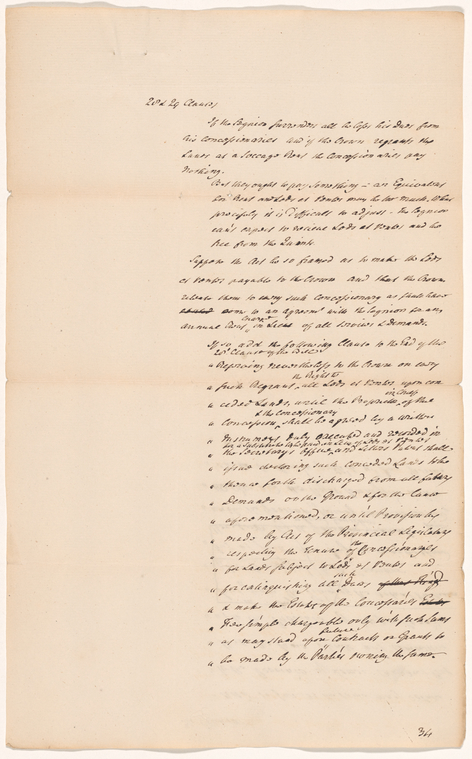 28 & 29 Clauses
If the Seignior surrenders all he loses his Dues from
his Concessionaries and if the Crown regrants the
Lands as a Soccage Rent the Concessionaries pay
Nothing.
But they ought to pay Something – an Equivalent
for Rent and Lods et Ventes may be too much. What
precisely it is difficult to adjust. The Seignior
can't expect to receive Lods et Ventes and be
free from the Quints.
Suppose the Act be so framed as to make the Lods
et Ventes payable to the Crown and that the Crown
release them to every such Concessionary as shall have
come to an Agreemt with the Seignior for any
annual Rent, in Lieu of all Services & Demands.
If so, add the following Clause to the End of the
28 Clause of the Bill
" Reserving nevertheless to the Crown on every
the Right to
" such Regrant, all Lods et Ventes upon con
" ceded Lands, until the Proprietor of the
& the Concessionary
" Concession, shall be agreed by a written
" Instrument duly executed and recorded in
" the Secretarys Office, and Letters Patent shall
" issue declaring such conceded Lands to be
" thence forth discharged from all future
" Demands on the Ground & for the Cause
" afore mentioned, or until Provision be
" made by Act of the Provincial Legislature
" respecting the Tenure of the Concessionaries
" for Lands subject to Lods et Ventes and
such
" for extinguishing all Dues
" & make the Estates of the Concessaries
" Fee simple chargeable only with such Sums
future
" as may stand upon Contracts or Grants to
" be made by the Parties owning the same.
34